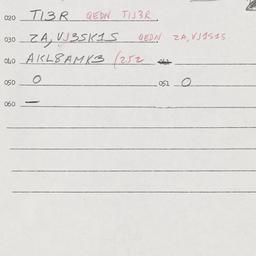 020 TI3R QEDN TIJ3R
030 ZA,VJ3SK1S QEDN ZA,VJ1S1S
040 AKL8AMK3 (252
050 O 051 O
060 —